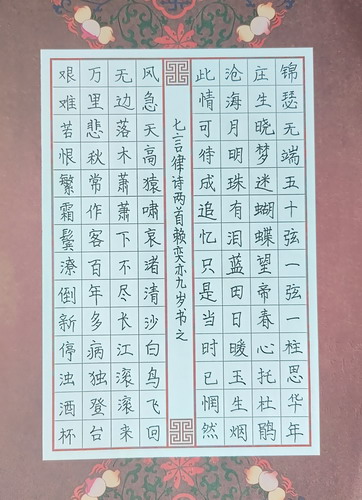 锦瑟无端五十弦一弦一柱思华年
庄生晓梦迷蝴蝶望帝春心托杜鹃
沧海月明珠有泪蓝田日暖玉生烟
此情可待成追忆只是当时已惘然
七言律诗两首赖奕亦九岁书之
风急天高猿啸哀渚清沙白鸟飞回
无边落木萧萧下不尽长江滚滚来
万里悲秋常作客百年多病独登台
艰难苦恨繁霜鬓潦倒新停浊酒杯